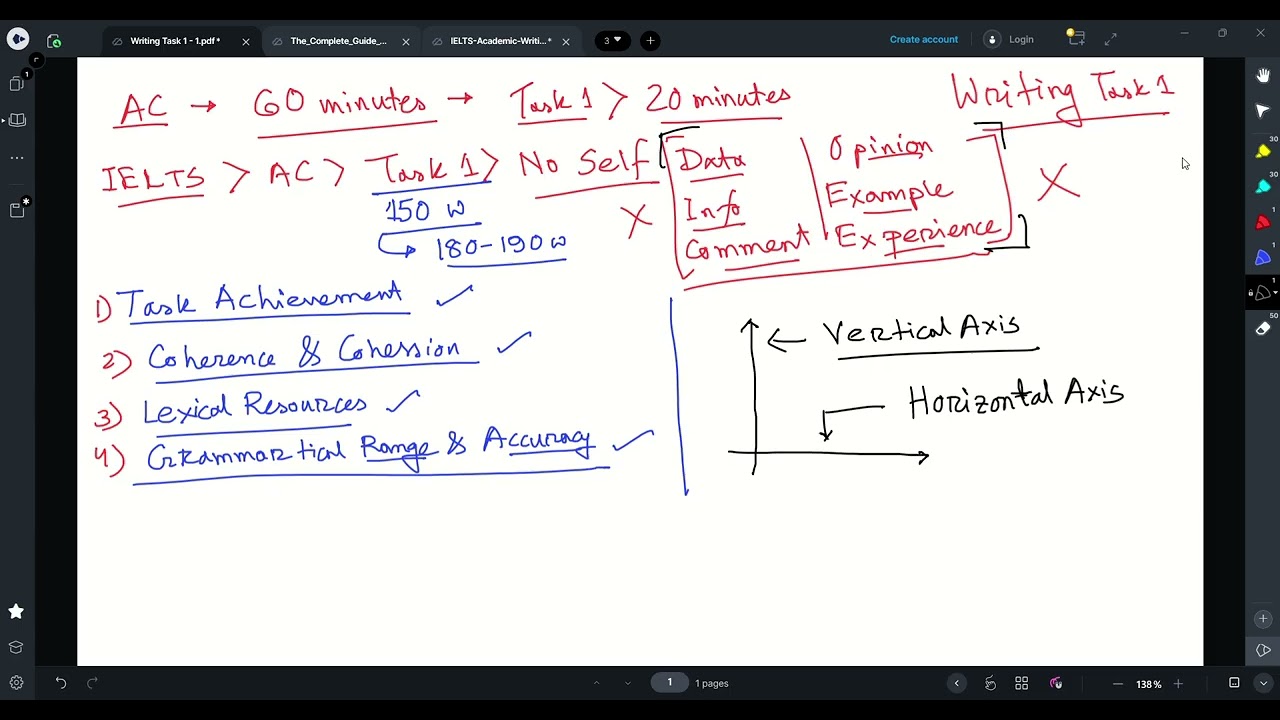 Writing Task 1 - 1.pdf *
The_Complete_Guide_...
IELTS-Academic-Writi... *
3
Create account
Login
AC → 60 minutes → Task 1 > 20 minutes
Writing Task 1
IELTS > AC > Task 1 > No Self
150 w
180-190 w
X
Data
Info
Comment
Opinion
Example
Experience
X
1) Task Achievement ✓
2) Coherence & Cohession ✓
3) Lexical Resources ✓
4) Grammartical Range & Accuracy ✓
← Vertical Axis
Horizontal Axis
1
1 pages
138 %
1
30
30
1
1
1
50